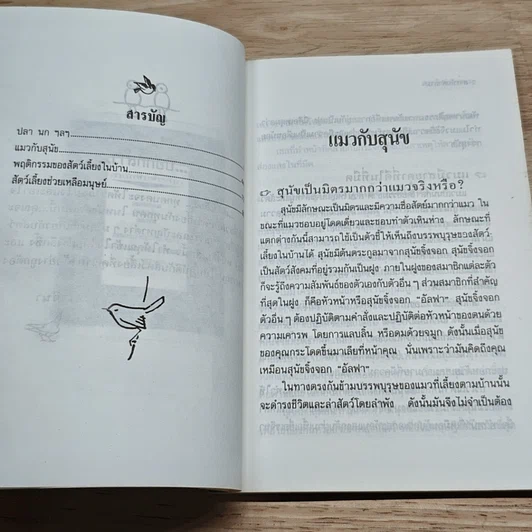 สารบัญ
ปลา นก ฯลฯ
แมวกับสุนัข
พฤติกรรมของสัตว์เลี้ยงในบ้าน
สัตว์เลี้ยงช่วยเหลือมนุษย์
แมวกับสุนัข
สุนัขเป็นมิตรมากกว่าแมวจริงหรือ?
สุนัขมีลักษณะเป็นมิตรและมีความซื่อสัตย์มากกว่าแมว ใน
ขณะที่แมวชอบอยู่โดดเดี่ยวและชอบทำตัวเหินห่าง ลักษณะที่
แตกต่างกันนี้สามารถใช้เป็นตัวชี้ให้เห็นถึงบรรพบุรุษของสัตว์
เลี้ยงในบ้านได้ สุนัขมีต้นตระกูลมาจากสุนัขจิ้งจอก สุนัขจิ้งจอก
เป็นสัตว์สังคมที่อยู่รวมกันเป็นฝูง ภายในฝูงของสมาชิกแต่ละตัว
ก็จะรู้ถึงความสัมพันธ์ของตัวเองกับตัวอื่น ๆ ส่วนสมาชิกที่สำคัญ
ที่สุดในฝูง ก็คือหัวหน้าหรือสุนัขจิ้งจอก "อัลฟา" สุนัขจิ้งจอก
ตัวอื่น ๆ ต้องปฏิบัติตามคำสั่งและปฏิบัติต่อหัวหน้าของตนด้วย
ความเคารพ โดยการแลบลิ้น หรือดมด้วยจมูก ดังนั้นเมื่อสุนัข
ของคุณกระโดดขึ้นมาเลียที่หน้าคุณ นั่นเพราะว่ามันคิดถึงคุณ
เหมือนสุนัขจิ้งจอก "อัลฟา"
ในทางตรงกันข้ามบรรพบุรุษของแมวที่เลี้ยงตามบ้านนั้น
จะดำรงชีวิตและล่าสัตว์โดยลำพัง ดังนั้นมันจึงไม่จำเป็นต้อง